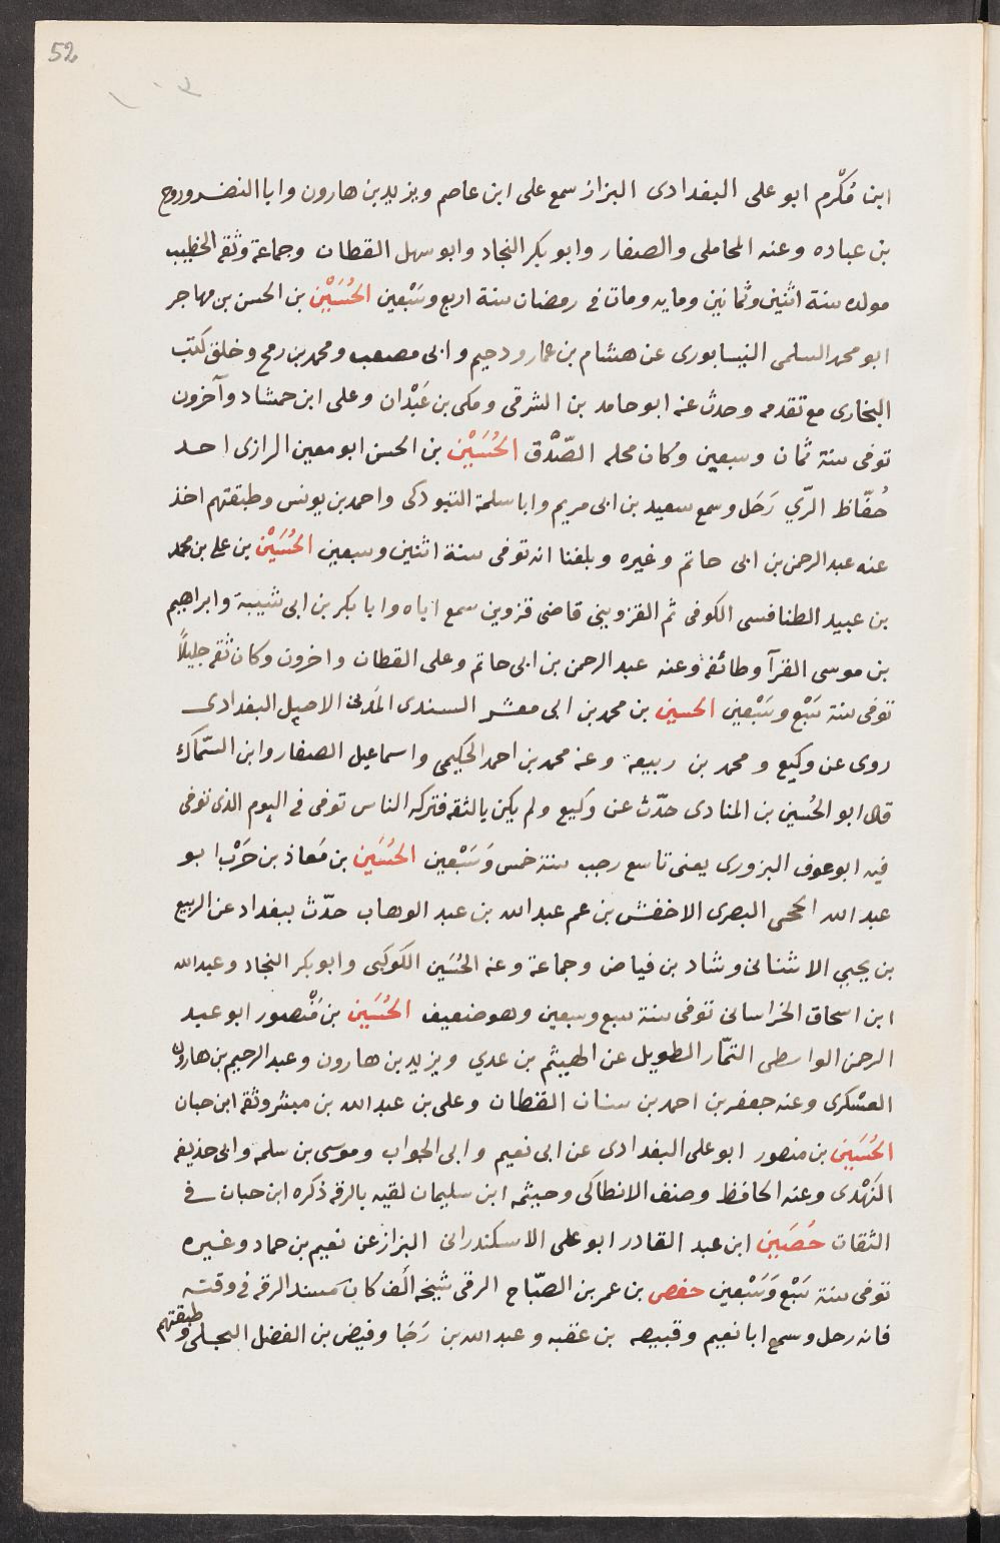 52
١٠٢
ابن مُكْرم ابو على البغدادى البزاز سمع على ابن عاصم ويزيد بن هارون وابا النضر وروح
بن عباده وعنه المحاملى والصفار وابو بكر النجاد وابو سهل القطان وجماعة وثقه الخطيب
مولده سنة اثنين وثمانين ومايه ومات في رمضان سنة اربع وسَبْعين الحُسَيْن بن الحسن بن مهاجر
ابو محمد السلمى النيسابورى عن هشام بن عمار ودحيم وابى مصعب ومحمد بن رمح وخلق كتب
البخارى مع تقدمه وحدث عنه ابو حامد بن الشرقى ومكى بن عَبْدان وعلى ابن حمشاد وآخرون
توفى سنة ثمان وسبعين وكان محله الصّدْق الحُسَيْن بن الحسن ابو معين الرازى احد
حُفّاظ الرّي رَحَل وسمع سعيد بن ابى مريم وابا سلمة التبوذكى واحمد بن يونس وطبقتهم اخذ
عنه عبد الرحمن بن ابى حاتم وغيره وبلغنا انه توفى سنة اثنين وسبعين الحُسَيْن بن على بن محمد
بن عبيد الطنافسى الكوفى ثم القزوينى قاضى قزوين سمع اباه وابا بكر بن ابى شيبة وابراهيم
بن موسى القرآ وطائفة وعنه عبد الرحمن بن ابى حاتم وعلى القطان واخرون وكان ثقه جليلاً
توفى سنة سَبْع وسَبْعين الحسين بن محمد بن ابى معشر السندى المَدنى الاصل البغدادى
روى عن وكيع ومحمد بن ربيعة وعنه محمد بن احمد الحكيمى واسماعيل الصفار وابن السّماك
قال ابو الحُسين بن المنادى حدّث عن وكيع ولم يكن بالثقه فتركه الناس توفى فى اليوم الذى توفى
فيه ابو عوف البزورى يعنى تاسع رجب سنة خمس وَسَبْعين الحُسَين بن مَعاذ بن حَرْب ابو
عبد الله الحجى البصرى الاخفش بن عم عبد الله بن عبد الوهاب حدّث ببغداد عن الربيع
بن يحيى الاشنانى وشاد بن فياض وجماعة وعنه الحُسَين الكوكبى وابو بكر النجاد وعبد الله
ابن اسحاق الخراسانى توفى سنة سبع وسبعين وهو ضعيف الحُسَين بن مَنْصور ابو عبد
الرحمن الواسطى التمّار الطويل عن الهيثم بن عدي ويزيد بن هارون وعبد الرحيم بن هارون
العسْكرى وعنه جعفر بن احمد بن سنان القطان وعلى بن عبد الله بن مبشر وثقه ابن حبان
الحُسَين بن منصور ابو على البغدادى عن ابى نعيم وابى الجواب وموسى بن سلمه وابى حذيفه
النَهْدى وعنه الحافظ وصنف الانطاكى وحيثمه ابن سليمان لقيه بالرقه ذكره ابن حبان فى
الثقات حُصَين ابن عبد القادر ابو على الاسكندرانى البزاز عن نعيم بن حماد وغيره
توفى سنة سَبْع وَسَبْعين حفص بن عمر بن الصّباح الرقى شيخه الَف كان مسند الرقه فى وقته
فانه رحل وسمع ابا نعيم وقبيصه بن عقبه وعبد الله بن رَجَا وفيض بن الفضل البجلى وطبقتهم